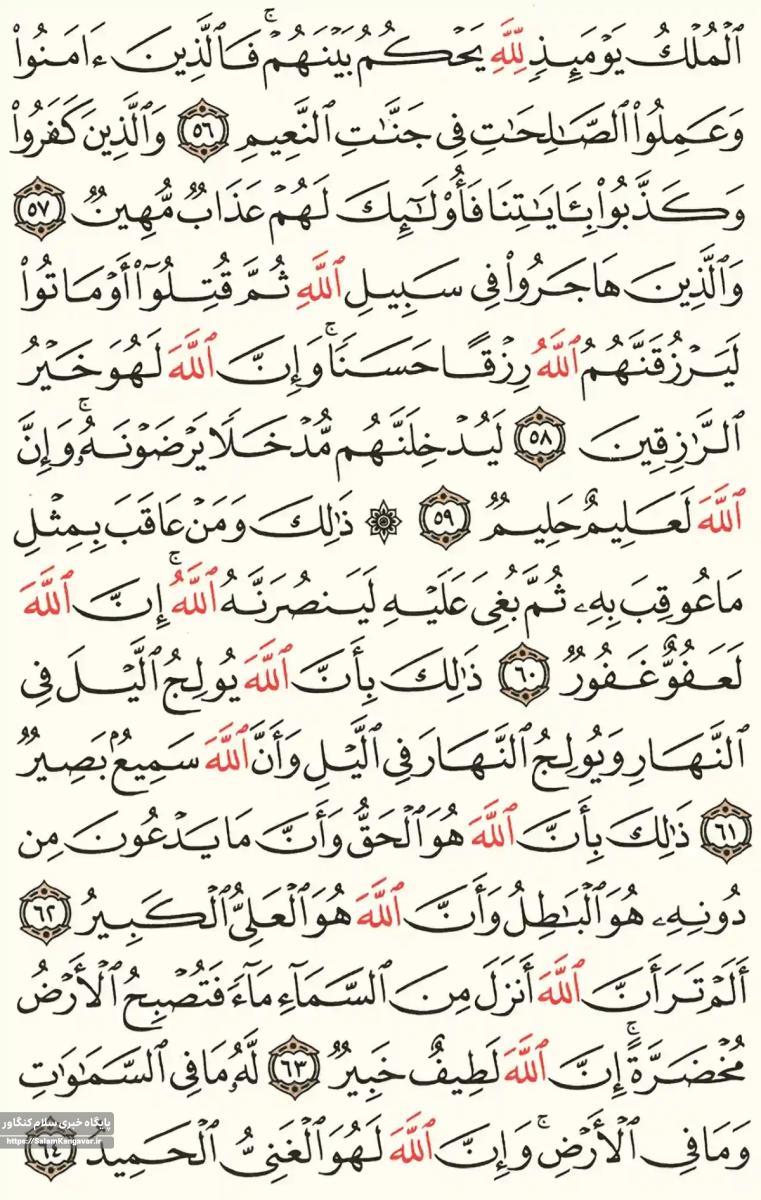 ٱلۡمُلۡكُ يَوۡمَئِذٍ لِّلَّهِ يَحۡكُمُ بَيۡنَهُمۡۚ فَٱلَّذِينَ ءَامَنُواْ
وَعَمِلُواْ ٱلصَّٰلِحَٰتِ فِي جَنَّٰتِ ٱلنَّعِيمِ ٥٦ وَٱلَّذِينَ كَفَرُواْ
وَكَذَّبُواْ بِـَٔايَٰتِنَا فَأُوْلَٰٓئِكَ لَهُمۡ عَذَابٞ مُّهِينٞ ٥٧
وَٱلَّذِينَ هَاجَرُواْ فِي سَبِيلِ ٱللَّهِ ثُمَّ قُتِلُوٓاْ أَوۡ مَاتُواْ
لَيَرۡزُقَنَّهُمُ ٱللَّهُ رِزۡقًا حَسَنٗاۚ وَإِنَّ ٱللَّهَ لَهُوَ خَيۡرُ
ٱلرَّٰزِقِينَ ٥٨ لَيُدۡخِلَنَّهُم مُّدۡخَلٗا يَرۡضَوۡنَهُۥۚ وَإِنَّ
ٱللَّهَ لَعَلِيمٌ حَلِيمٞ ٥٩ ۞ ذَٰلِكَ وَمَنۡ عَاقَبَ بِمِثۡلِ
مَا عُوقِبَ بِهِۦ ثُمَّ بُغِيَ عَلَيۡهِ لَيَنصُرَنَّهُ ٱللَّهُۚ إِنَّ ٱللَّهَ
لَعَفُوٌّ غَفُورٞ ٦٠ ذَٰلِكَ بِأَنَّ ٱللَّهَ يُولِجُ ٱلَّيۡلَ فِي
ٱلنَّهَارِ وَيُولِجُ ٱلنَّهَارَ فِي ٱلَّيۡلِ وَأَنَّ ٱللَّهَ سَمِيعُۢ بَصِيرٞ
٦١ ذَٰلِكَ بِأَنَّ ٱللَّهَ هُوَ ٱلۡحَقُّ وَأَنَّ مَا يَدۡعُونَ مِن
دُونِهِۦ هُوَ ٱلۡبَٰطِلُ وَأَنَّ ٱللَّهَ هُوَ ٱلۡعَلِيُّ ٱلۡكَبِيرُ ٦٢
أَلَمۡ تَرَ أَنَّ ٱللَّهَ أَنزَلَ مِنَ ٱلسَّمَآءِ مَآءٗ فَتُصۡبِحُ ٱلۡأَرۡضُ
مُخۡضَرَّةًۚ إِنَّ ٱللَّهَ لَطِيفٌ خَبِيرٞ ٦٣ لَّهُۥ مَا فِي ٱلسَّمَٰوَٰتِ
وَمَا فِي ٱلۡأَرۡضِۚ وَإِنَّ ٱللَّهَ لَهُوَ ٱلۡغَنِيُّ ٱلۡحَمِيدُ ٦٤
پایگاه خبری سلام کنگاور
https://SalamKangavar.ir